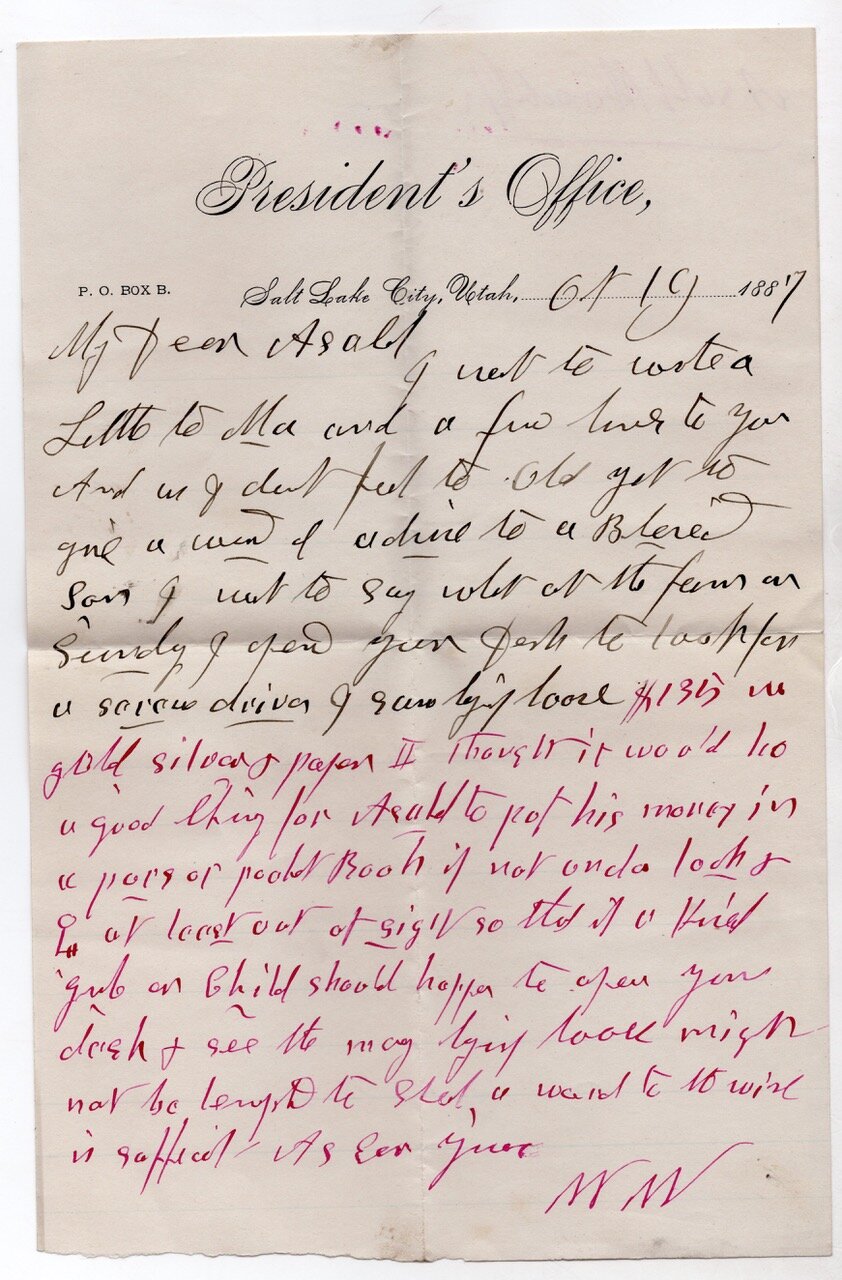 President's Office,
P. O. BOX B.
Salt Lake City, Utah, Oct 19 1887
My Dear Asahel
I want to write a
Letter to Ma and a few lines to you
And as I dont feel to Old yet to
give a word of advice to a
Son I want to say what at the farm on
Sundy I opend your Desk to look for
a screw driver I saw lying loose $135 in
gold silver & paper I thought it would be
a good thing for Asahel to put his money in
a purs or pocket Book if not under lock &
at least out of sight so that if a Hired
girl or Child should happen to open your
desk & see the mony lying loose might
not be tempted to steal a word to the wise
is sufficient As Ever Yours
W W